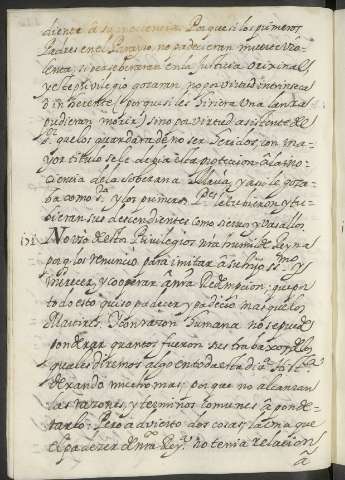 diente â su ynocencia. Porque si los primeros
Padres en el Parayso no padecieran muerte vio-
lenta, si perseberaran en la Justicia original,
y este privilegio gozaran no por virtud intrinseca
ô inherente porque si les hiriera una lanza
pudieran morir; sino por virtud asistente de
que los guardara de no ser heridos, con ma-
yor titulo se le devia esta proteccion a la yno-
cencia de la soberana Maria, y asi le goza-
ba como Sra. y los primeros Pes. le tubieron y tu-
bieran sus decendientes como siervos y vasallos.
131 No uso destos Privilegios nra humilde Reyna
porq los renuncio para imitar â su hijo ssmo. y
merecer, y cooperar â nra Redempcion; que por
todo esto quiso padecer y padeció mas que los
Martires. Y con razon humana no se puede
ponderar quantos fueron sus trabaxos de los
quales diremos algo en toda esta diva. Hista.
dexando mucho mas, porque no alcanzan
las razones, y terminos comunes â ponde-
rarlo. Pero advierto dos cosas; la una que
el padecer de nra Reya. no tenia relacion
â